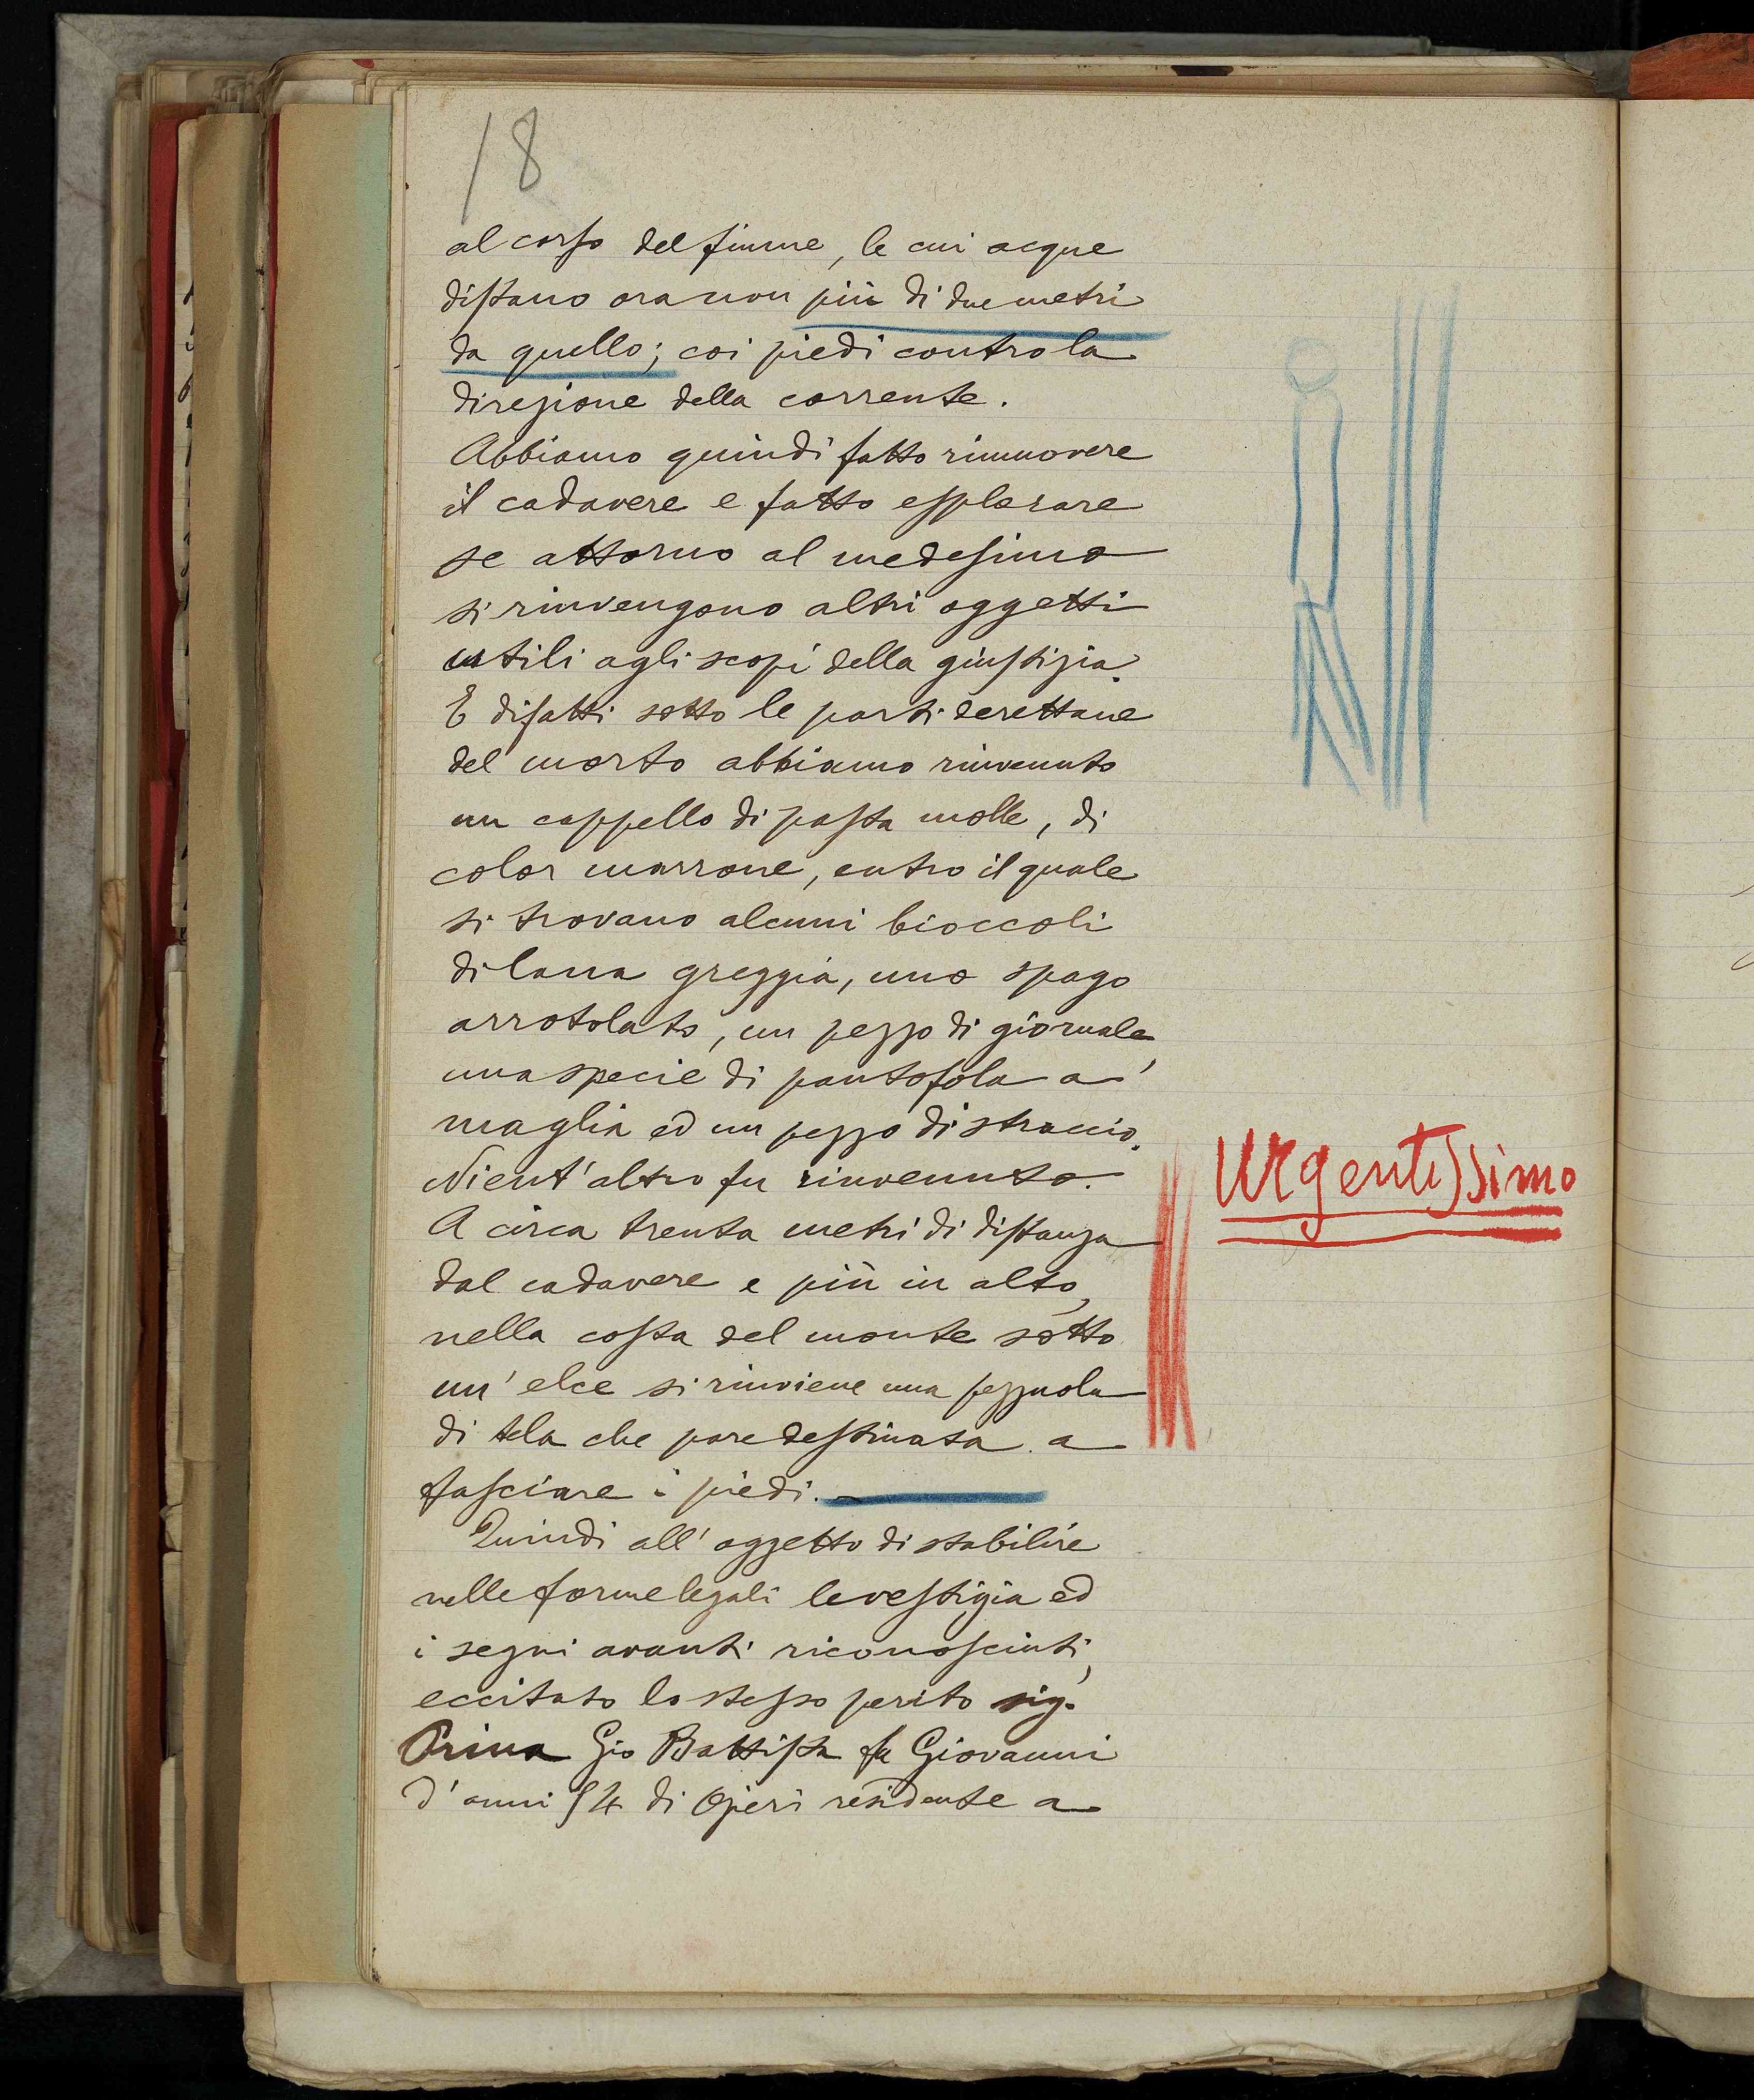 18
al corso del fiume, le cui acque
distano ora non più di due metri
da quello; coi piedi contro la
direzione della corrente.
Abbiamo quindi fatto rimuovere
il cadavere e fatto esplorare
se attorno al medesimo
si rinvengono altri oggetti
utili agli scopi della giustizia.
E difatti sotto le parti deretane
del morto abbiamo rinvenuto
un cappello di pasta molle, di
color marrone, entro il quale
si trovano alcuni bioccoli
di lana greggia, uno spago
arrotolato, un pezzo di giornale,
una specie di pantofola a
maglia ed un pezzo di straccio.
Nient'altro fu rinvenuto.
Urgentissimo
A circa trenta metri di distanza
dal cadavere e più in alto,
nella costa del monte sotto
un'elce si rinviene una pezzuola
di tela che pare destinata a
fasciare i piedi.
Quindi all'oggetto di stabilire
nelle forme legali le vestigia ed
i segni avanti riconosciuti,
eccitato lo stesso perito sig.
Prina Gio Battista fu Giovanni
d'anni 54 di Operi residente a